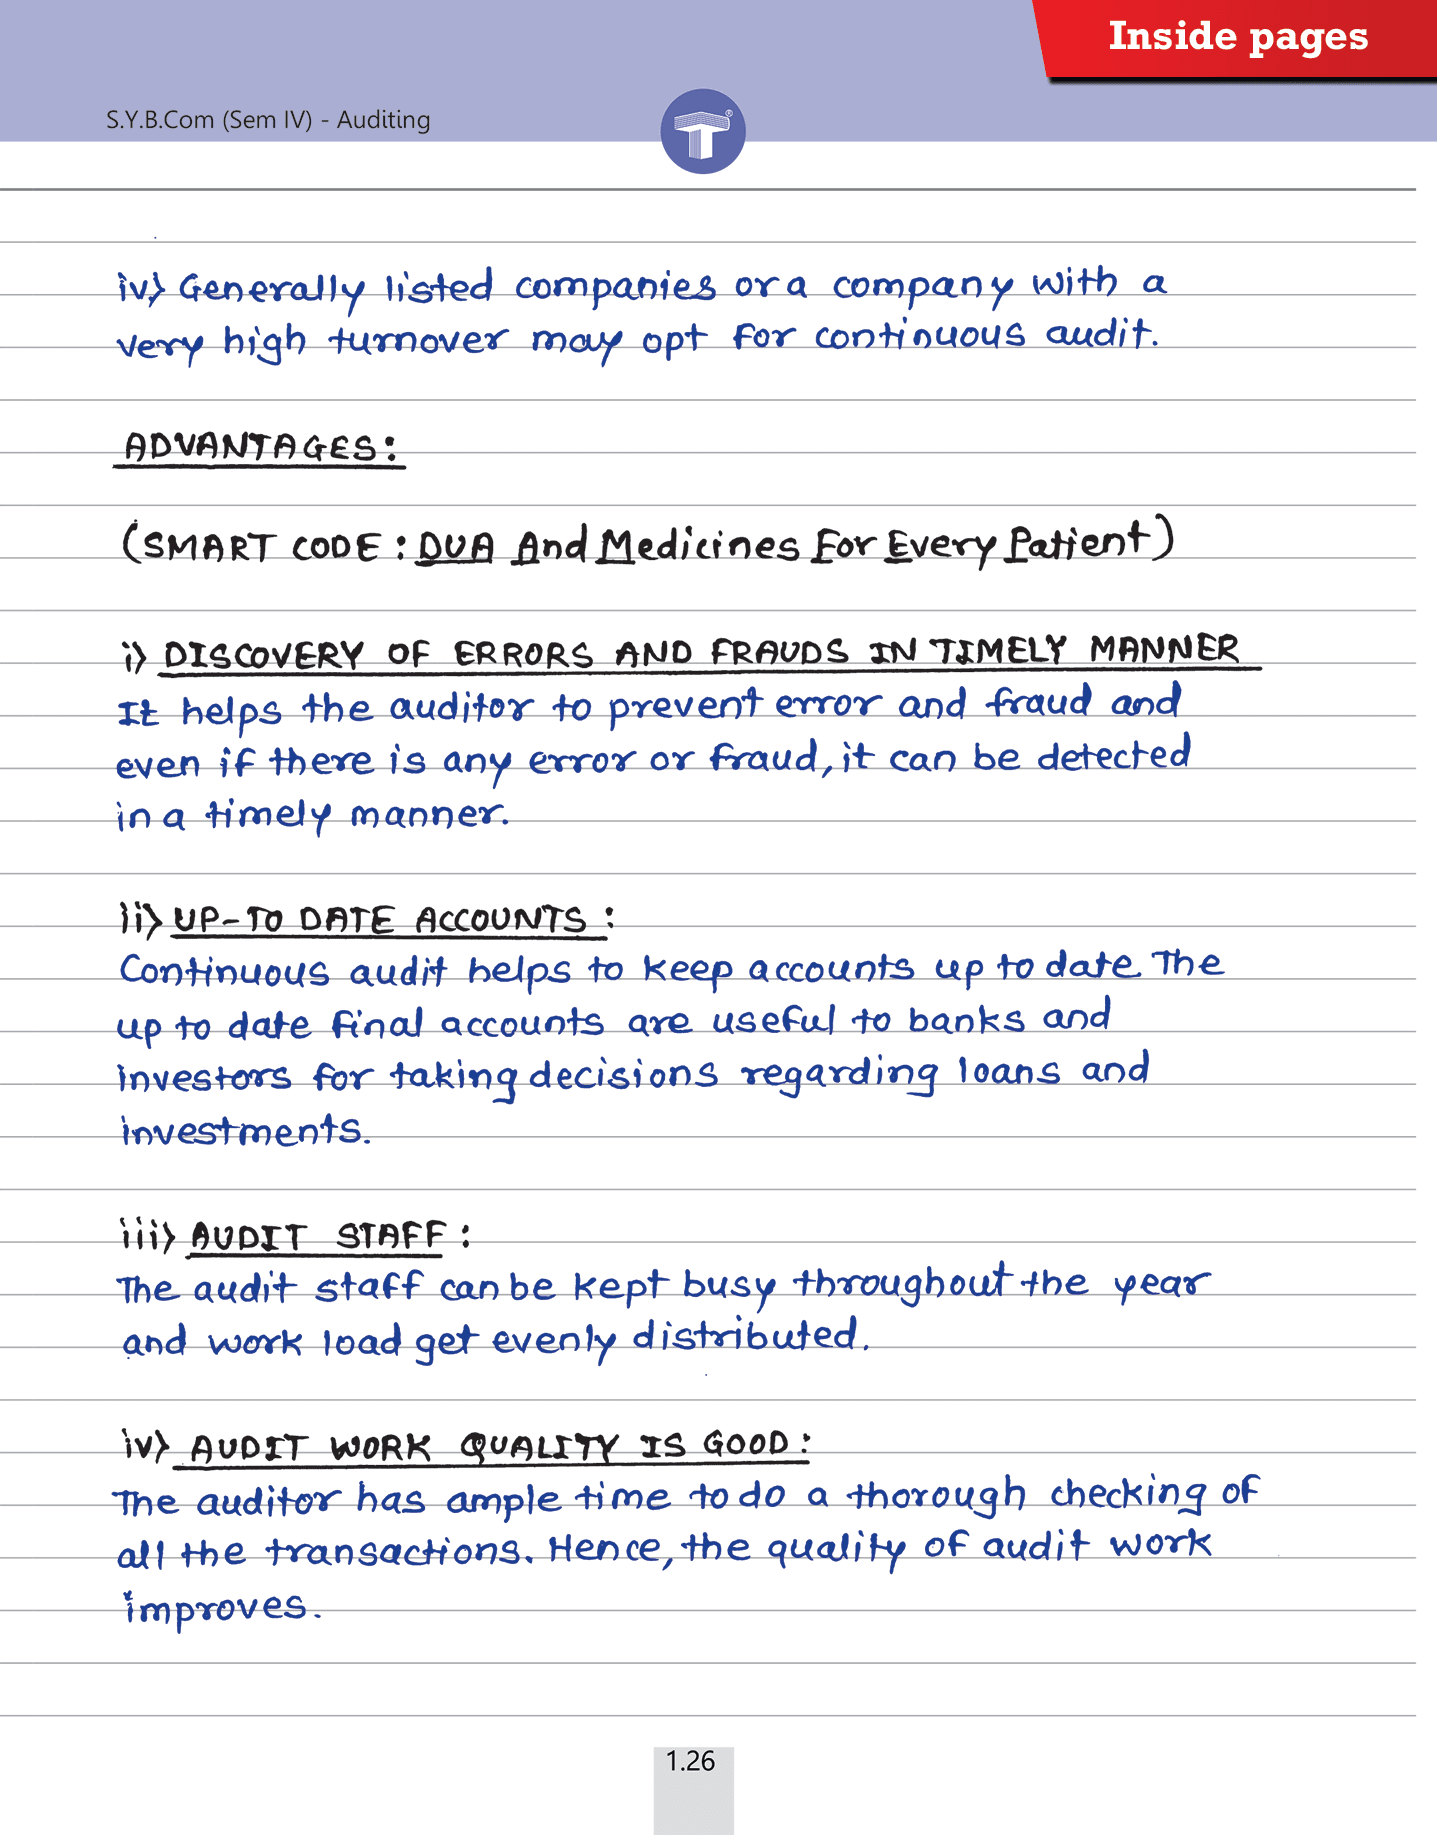 Inside pages
S.Y.B.Com (Sem IV) - Auditing
iv) Generally listed companies or a company with a
very high turnover may opt for continuous audit.
ADVANTAGES:
(SMART CODE: DUA And Medicines For Every Patient)
i) DISCOVERY OF ERRORS AND FRAUDS IN TIMELY MANNER
It helps the auditor to prevent error and fraud and
even if there is any error or fraud, it can be detected
in a timely manner.
ii) UP-TO DATE ACCOUNTS:
Continuous audit helps to keep accounts up to date The
up to date final accounts are useful to banks and
investors for taking decisions regarding loans and
investments.
iii) AUDIT STAFF:
The audit staff can be kept busy throughout the year
and work load get evenly distributed.
iv) AUDIT WORK QUALITY IS GOOD:
The auditor has ample time to do a thorough checking of
all the transactions. Hence, the quality of audit work
improves.
1.26